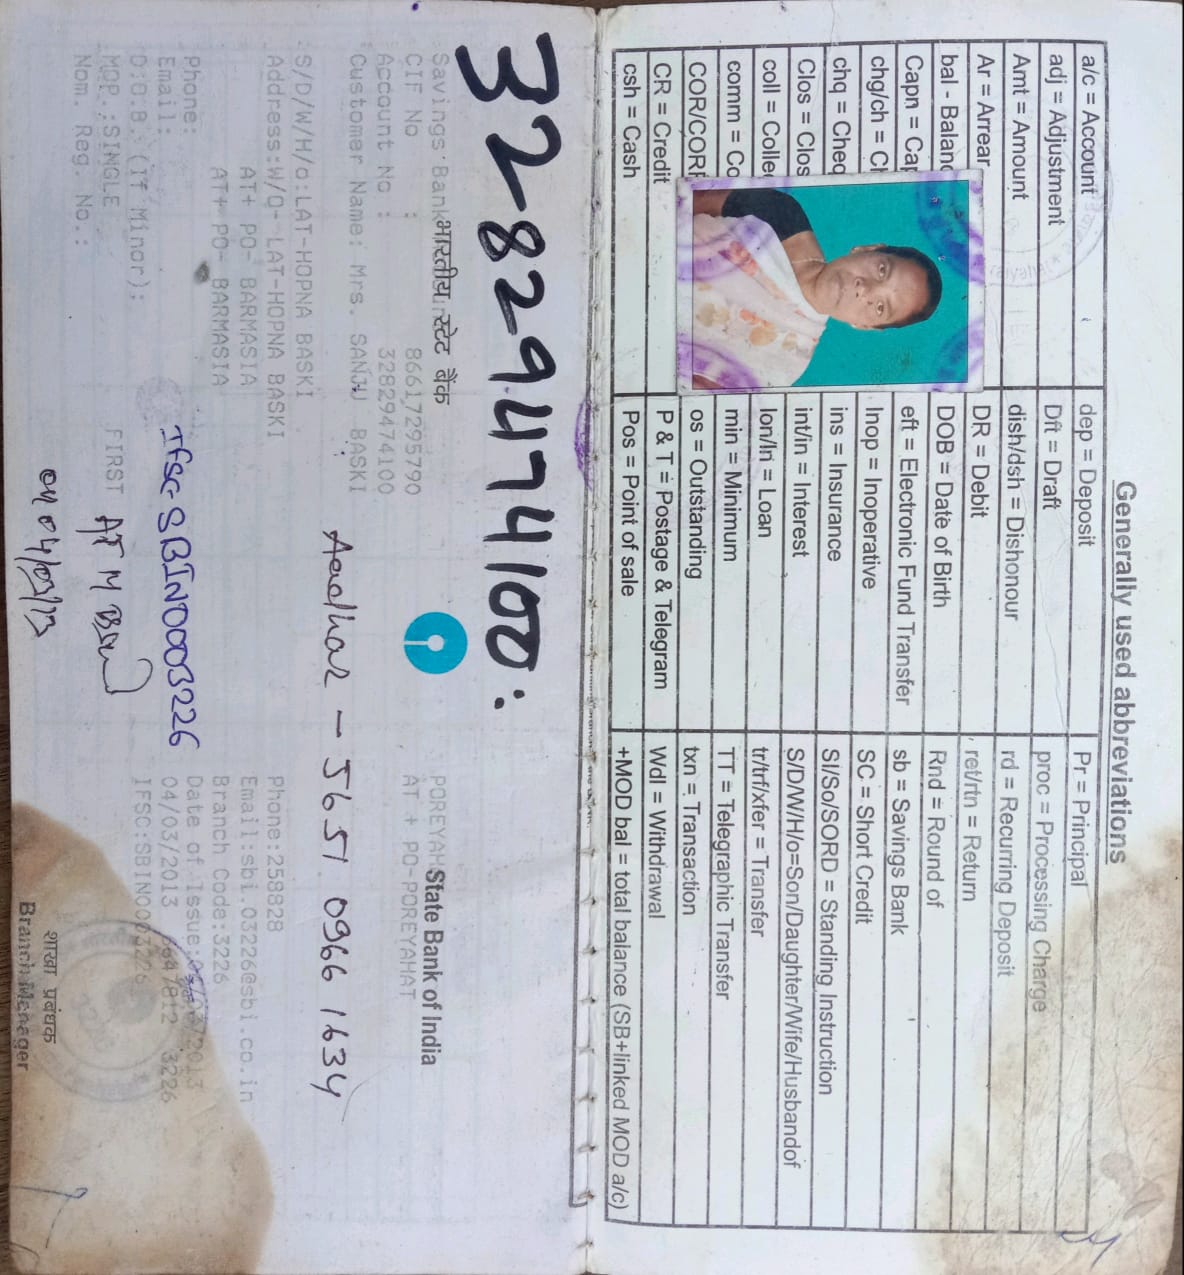 Generally used abbreviations
a/c = Account dep = Deposit Pr = Principal
adj = Adjustment Dft = Draft proc = Processing Charge
Amt = Amount dish/dsh = Dishonour rd = Recurring Deposit
Ar = Arrear DR = Debit ret/rtn = Return
bal - Balanc DOB = Date of Birth Rnd = Round of
Capn = Ca eft = Electronic Fund Transfer sb = Savings Bank
chg/ch = Ch Inop = Inoperative SC = Short Credit
chq = Cheq ins = Insurance SI/So/SORD = Standing Instruction
Clos = Clos int/in = Interest S/D/W/H/o=Son/Daughter/Wife/Husbandof
coll = Colle lon/ln = Loan tr/trf/xfer = Transfer
comm = Co min = Minimum TT = Telegraphic Transfer
COR/COR os = Outstanding txn = Transaction
CR = Credit P & T = Postage & Telegram Wdl = Withdrawal
csh = Cash Pos = Point of sale +MOD bal = total balance (SB+linked MOD a/c)
32829474100:
भारतीय स्टेट बैंक State Bank of India
Savings Bank POREYAH
CIF No : 86617295790 AT + PO-POREYAHAT
Account No : 32829474100
Customer Name: Mrs. SANJU BASKI
Aadhar - 5651 0966 1634
S/D/W/H/o:LAT-HOPNA BASKI
Address:W/O- LAT-HOPNA BASKI Phone:258828
AT+ PO- BARMASIA Email:sbi.03226@sbi.co.in
AT+ PO- BARMASIA Branch Code:3226
Phone: Date of Issue:
Email: 04/03/2013 3226
Ifsc SBIN0003226
D.O.B. (If Minor): IFSC:SBIN0003226
MOP.:SINGLE FIRST
Nom. Reg. No.:
शाखा प्रबंधक
Branch Manager